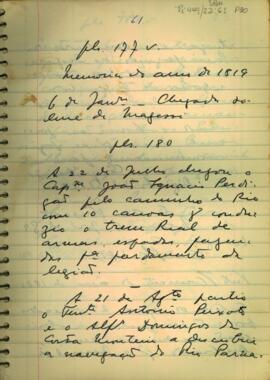 61
pls. 177 v.
Memoria do anno de 1819
6 de Janro - Chegada so-
lene de Magessi
pls. 180
A 22 de Junho chegou o
Capm João Ignacio Perdi-
gão pelo caminho do Rio
com 10 canoas q̃ condu-
zio o trem Real de
armas, espadas,
pa fardamento da
legião.
A 21 de Agto partio
o Tente Antonio Peixoto
e o Alfs Domingos da
Costa Monteiro a descobrir
a navegação do Rio Parna-